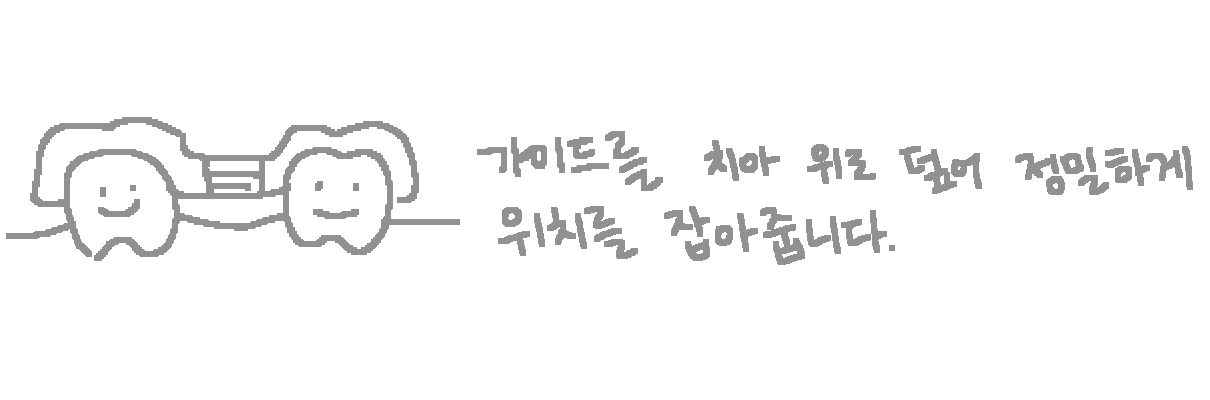 가이드를 치아 위로 덮어 정밀하게
위치를 잡아줍니다.